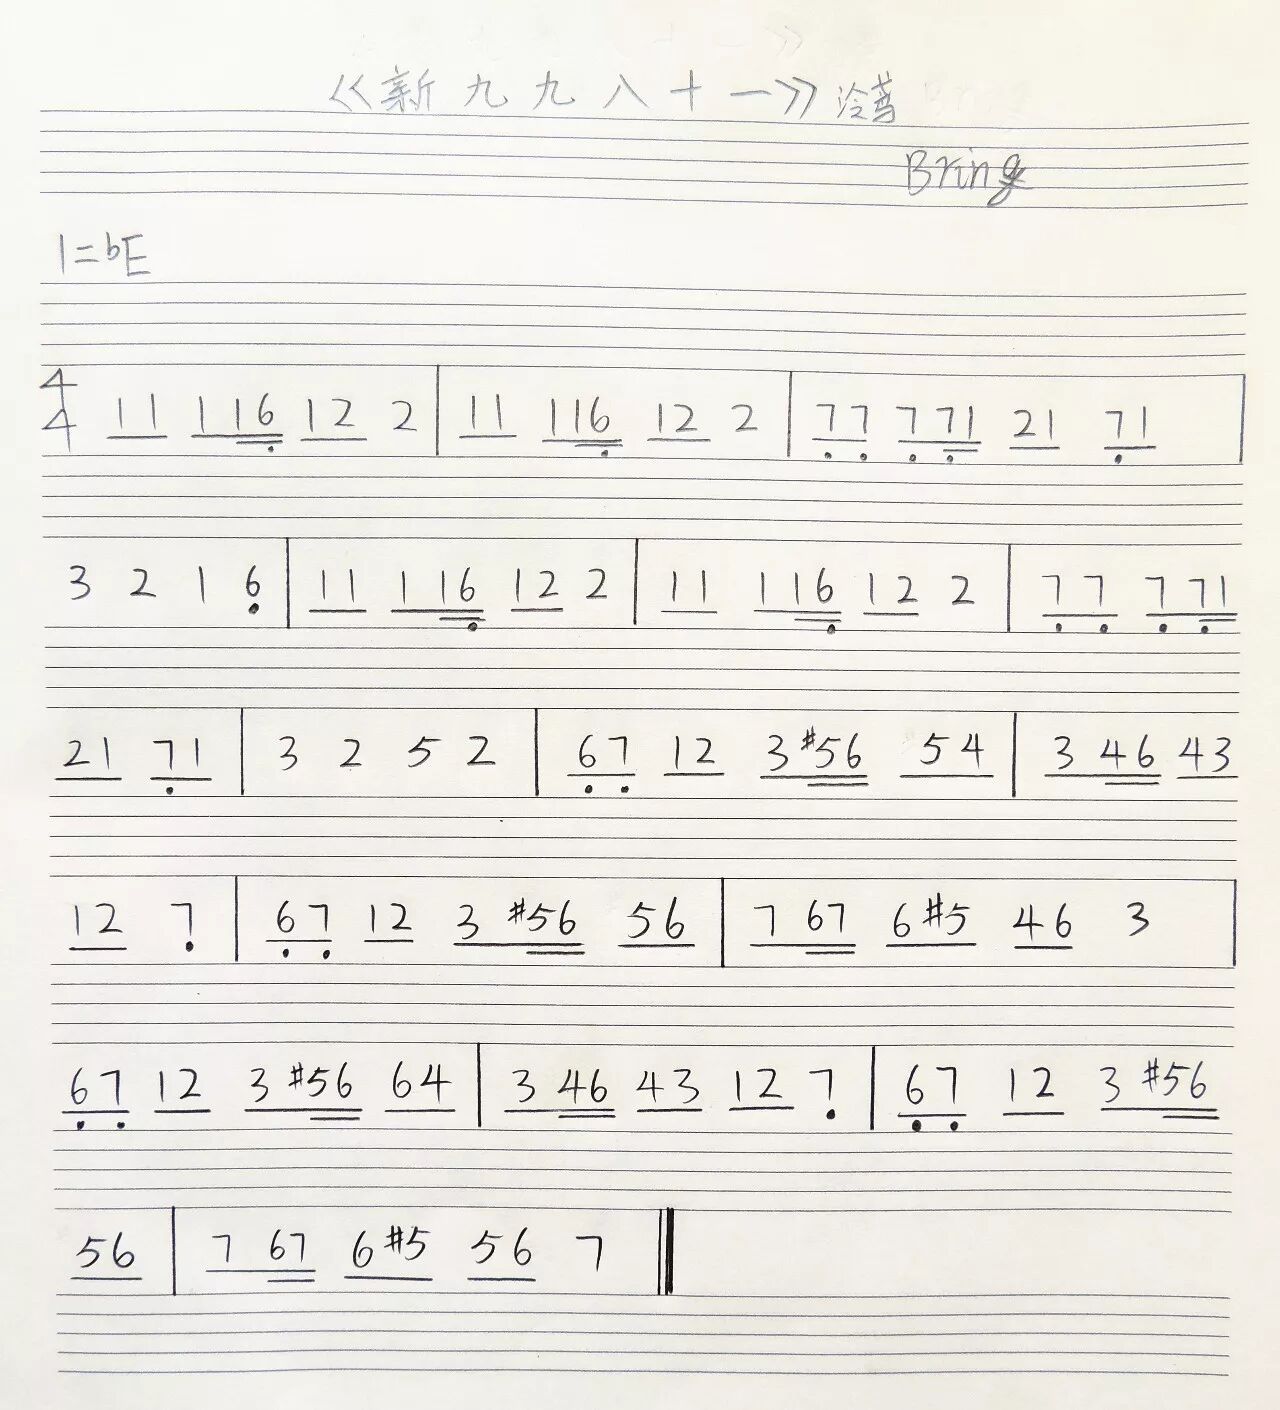 《新九九八十一》泠鸢
Bring
1=bE
4/4 11 116 12 2 | 11 116 12 2 | 77 771 21 71 |
3 2 1 6 | 11 116 12 2 | 11 116 12 2 | 77 771
21 71 | 3 2 5 2 | 67 12 3#56 54 | 346 43
12 7 | 67 12 3#56 56 | 767 6#5 46 3 |
67 12 3#56 64 | 346 43 12 7 | 67 12 3#56
56 | 767 6#5 56 7 ‖